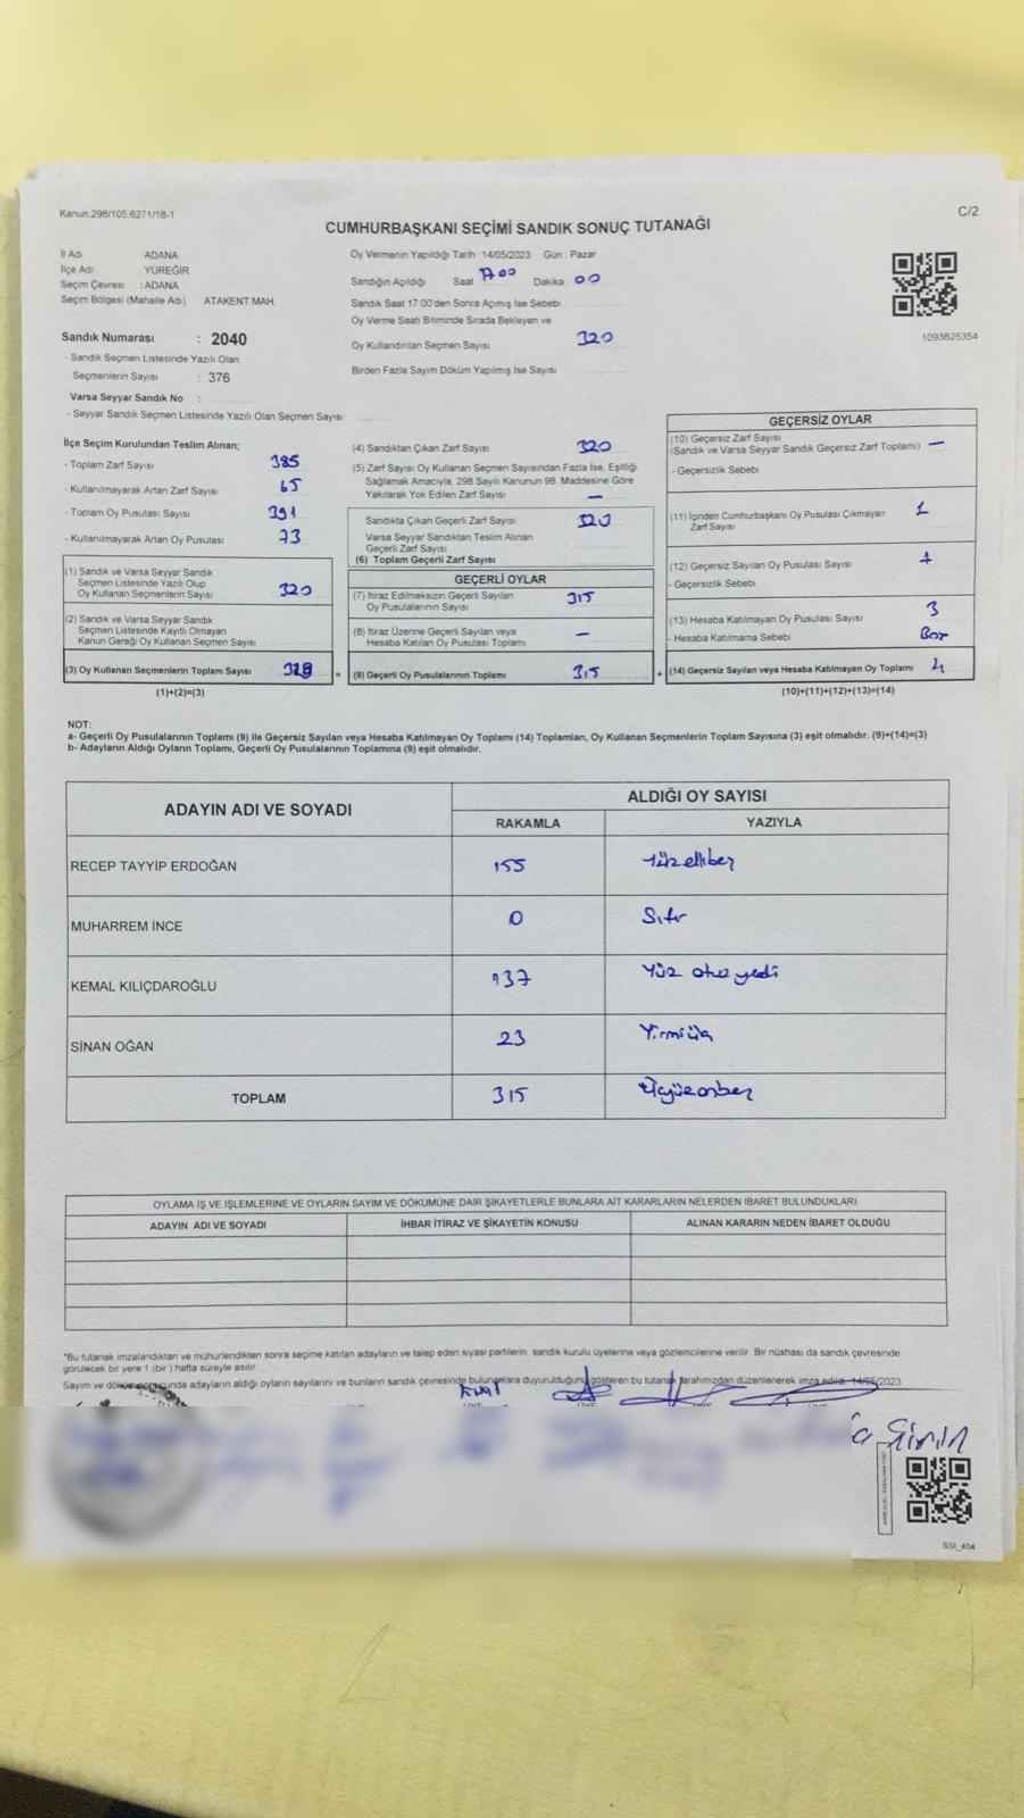 Kanun.298/105.6271/18-1
C/2
CUMHURBAŞKANI SEÇİMİ SANDIK SONUÇ TUTANAĞI
İl Adı ADANA
İlçe Adı YÜREĞİR
Seçim Çevresi : ADANA
Seçim Bölgesi (Mahalle Adı) ATAKENT MAH.
Oy Vermenin Yapıldığı Tarih :14/05/2023 Gün : Pazar
Sandığın Açıldığı Saat 1700 Dakika 00
Sandık Saat 17:00'den Sonra Açmış İse Sebebi
Oy Verme Saati Bitiminde Sırada Bekleyen ve
Oy Kullandırılan Seçmen Sayısı 320
Birden Fazla Sayım Döküm Yapılmış İse Sayısı
1093625354
Sandık Numarası : 2040
- Sandık Seçmen Listesinde Yazılı Olan
Seçmenlerin Sayısı : 376
Varsa Seyyar Sandık No :
- Seyyar Sandık Seçmen Listesinde Yazılı Olan Seçmen Sayısı
İlçe Seçim Kurulundan Teslim Alınan;
- Toplam Zarf Sayısı 385
- Kullanılmayarak Artan Zarf Sayısı 65
- Toplam Oy Pusulası Sayısı 391
- Kullanılmayarak Artan Oy Pusulası 73
(1) Sandık ve Varsa Seyyar Sandık
Seçmen Listesinde Yazılı Olup
Oy Kullanan Seçmenlerin Sayısı 320
(2) Sandık ve Varsa Seyyar Sandık
Seçmen Listesinde Kayıtlı Olmayan
Kanun Gereği Oy Kullanan Seçmen Sayısı
(3) Oy Kullanan Seçmenlerin Toplam Sayısı
(1)+(2)=(3)
(4) Sandıktan Çıkan Zarf Sayısı 320
(5) Zarf Sayısı Oy Kullanan Seçmen Sayısından Fazla İse, Eşitliği
Sağlamak Amacıyla, 298 Sayılı Kanunun 98. Maddesine Göre
Yakılarak Yok Edilen Zarf Sayısı —
Sandıkta Çıkan Geçerli Zarf Sayısı 320
Varsa Seyyar Sandıktan Teslim Alınan
Geçerli Zarf Sayısı
(6) Toplam Geçerli Zarf Sayısı
GEÇERLİ OYLAR
(7) İtiraz Edilmeksizin Geçerli Sayılan
Oy Pusulalarının Sayısı 315
(8) İtiraz Üzerine Geçerli Sayılan veya
Hesaba Katılan Oy Pusulası Toplamı —
= (9) Geçerli Oy Pusulalarının Toplamı 315
GEÇERSİZ OYLAR
(10) Geçersiz Zarf Sayısı
(Sandık ve Varsa Seyyar Sandık Geçersiz Zarf Toplamı) —
- Geçersizlik Sebebi
(11) İçinden Cumhurbaşkanı Oy Pusulası Çıkmayan
Zarf Sayısı 1
(12) Geçersiz Sayılan Oy Pusulası Sayısı
- Geçersizlik Sebebi
(13) Hesaba Katılmayan Oy Pusulası Sayısı 3
- Hesaba Katılmama Sebebi Boş
+ (14) Geçersiz Sayılan veya Hesaba Katılmayan Oy Toplamı 4
(10)+(11)+(12)+(13)=(14)
NOT:
a- Geçerli Oy Pusulalarının Toplamı (9) ile Geçersiz Sayılan veya Hesaba Katılmayan Oy Toplamı (14) Toplamları, Oy Kullanan Seçmenlerin Toplam Sayısına (3) eşit olmalıdır. (9)+(14)=(3)
b- Adayların Aldığı Oyların Toplamı, Geçerli Oy Pusulalarının Toplamına (9) eşit olmalıdır.
ADAYIN ADI VE SOYADI ALDIĞI OY SAYISI
RAKAMLA YAZIYLA
RECEP TAYYİP ERDOĞAN 155 Yüzelibeş
MUHARREM İNCE 0 Sıfır
KEMAL KILIÇDAROĞLU 137 Yüz otuz yedi
SİNAN OĞAN 23 Yirmiüç
TOPLAM 315 Üçyüzonbeş
OYLAMA İŞ VE İŞLEMLERİNE VE OYLARIN SAYIM VE DÖKÜMÜNE DAİR ŞİKAYETLERLE BUNLARA AİT KARARLARIN NELERDEN İBARET BULUNDUKLARI
ADAYIN ADI VE SOYADI İHBAR İTİRAZ VE ŞİKAYETİN KONUSU ALINAN KARARIN NEDEN İBARET OLDUĞU
"Bu tutanak imzalandıktan ve mühürlendikten sonra seçime katılan adayların ve talep eden siyasi partilerin sandık kurulu üyelerine veya gözlemcilerine verilir. Bir nüshası da sandık çevresinde
görülecek bir yere 1 (bir ) hafta süreyle asılır.
Sayım ve döküm sonucunda adayların aldığı oyların sayılarını ve bunların sandık çevresinde bulunanlara duyurulduğunu gösteren bu tutanak tarafımızdan düzenlenerek imza edildi. 14/05/2023